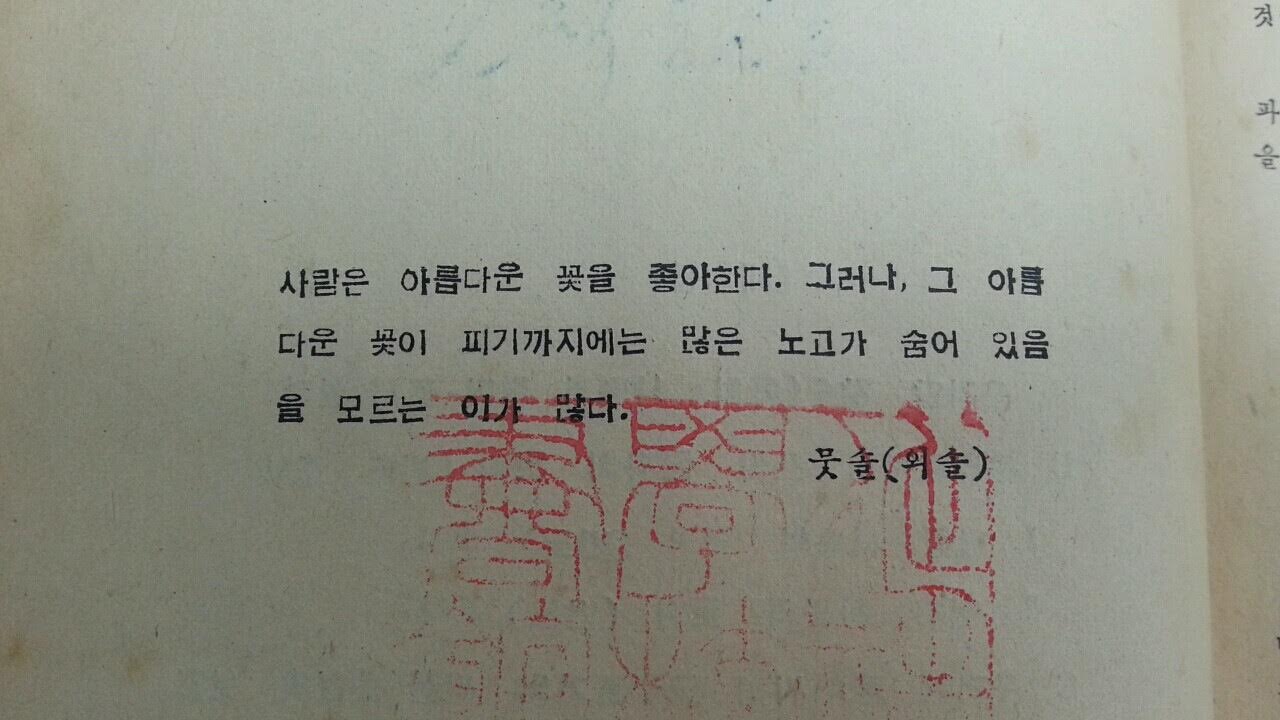 사람은 아름다운 꽃을 좋아한다. 그러나, 그 아름
다운 꽃이 피기까지에는 많은 노고가 숨어 있음
을 모르는 이가 많다.
뭇솔(외솔)
것
파
을